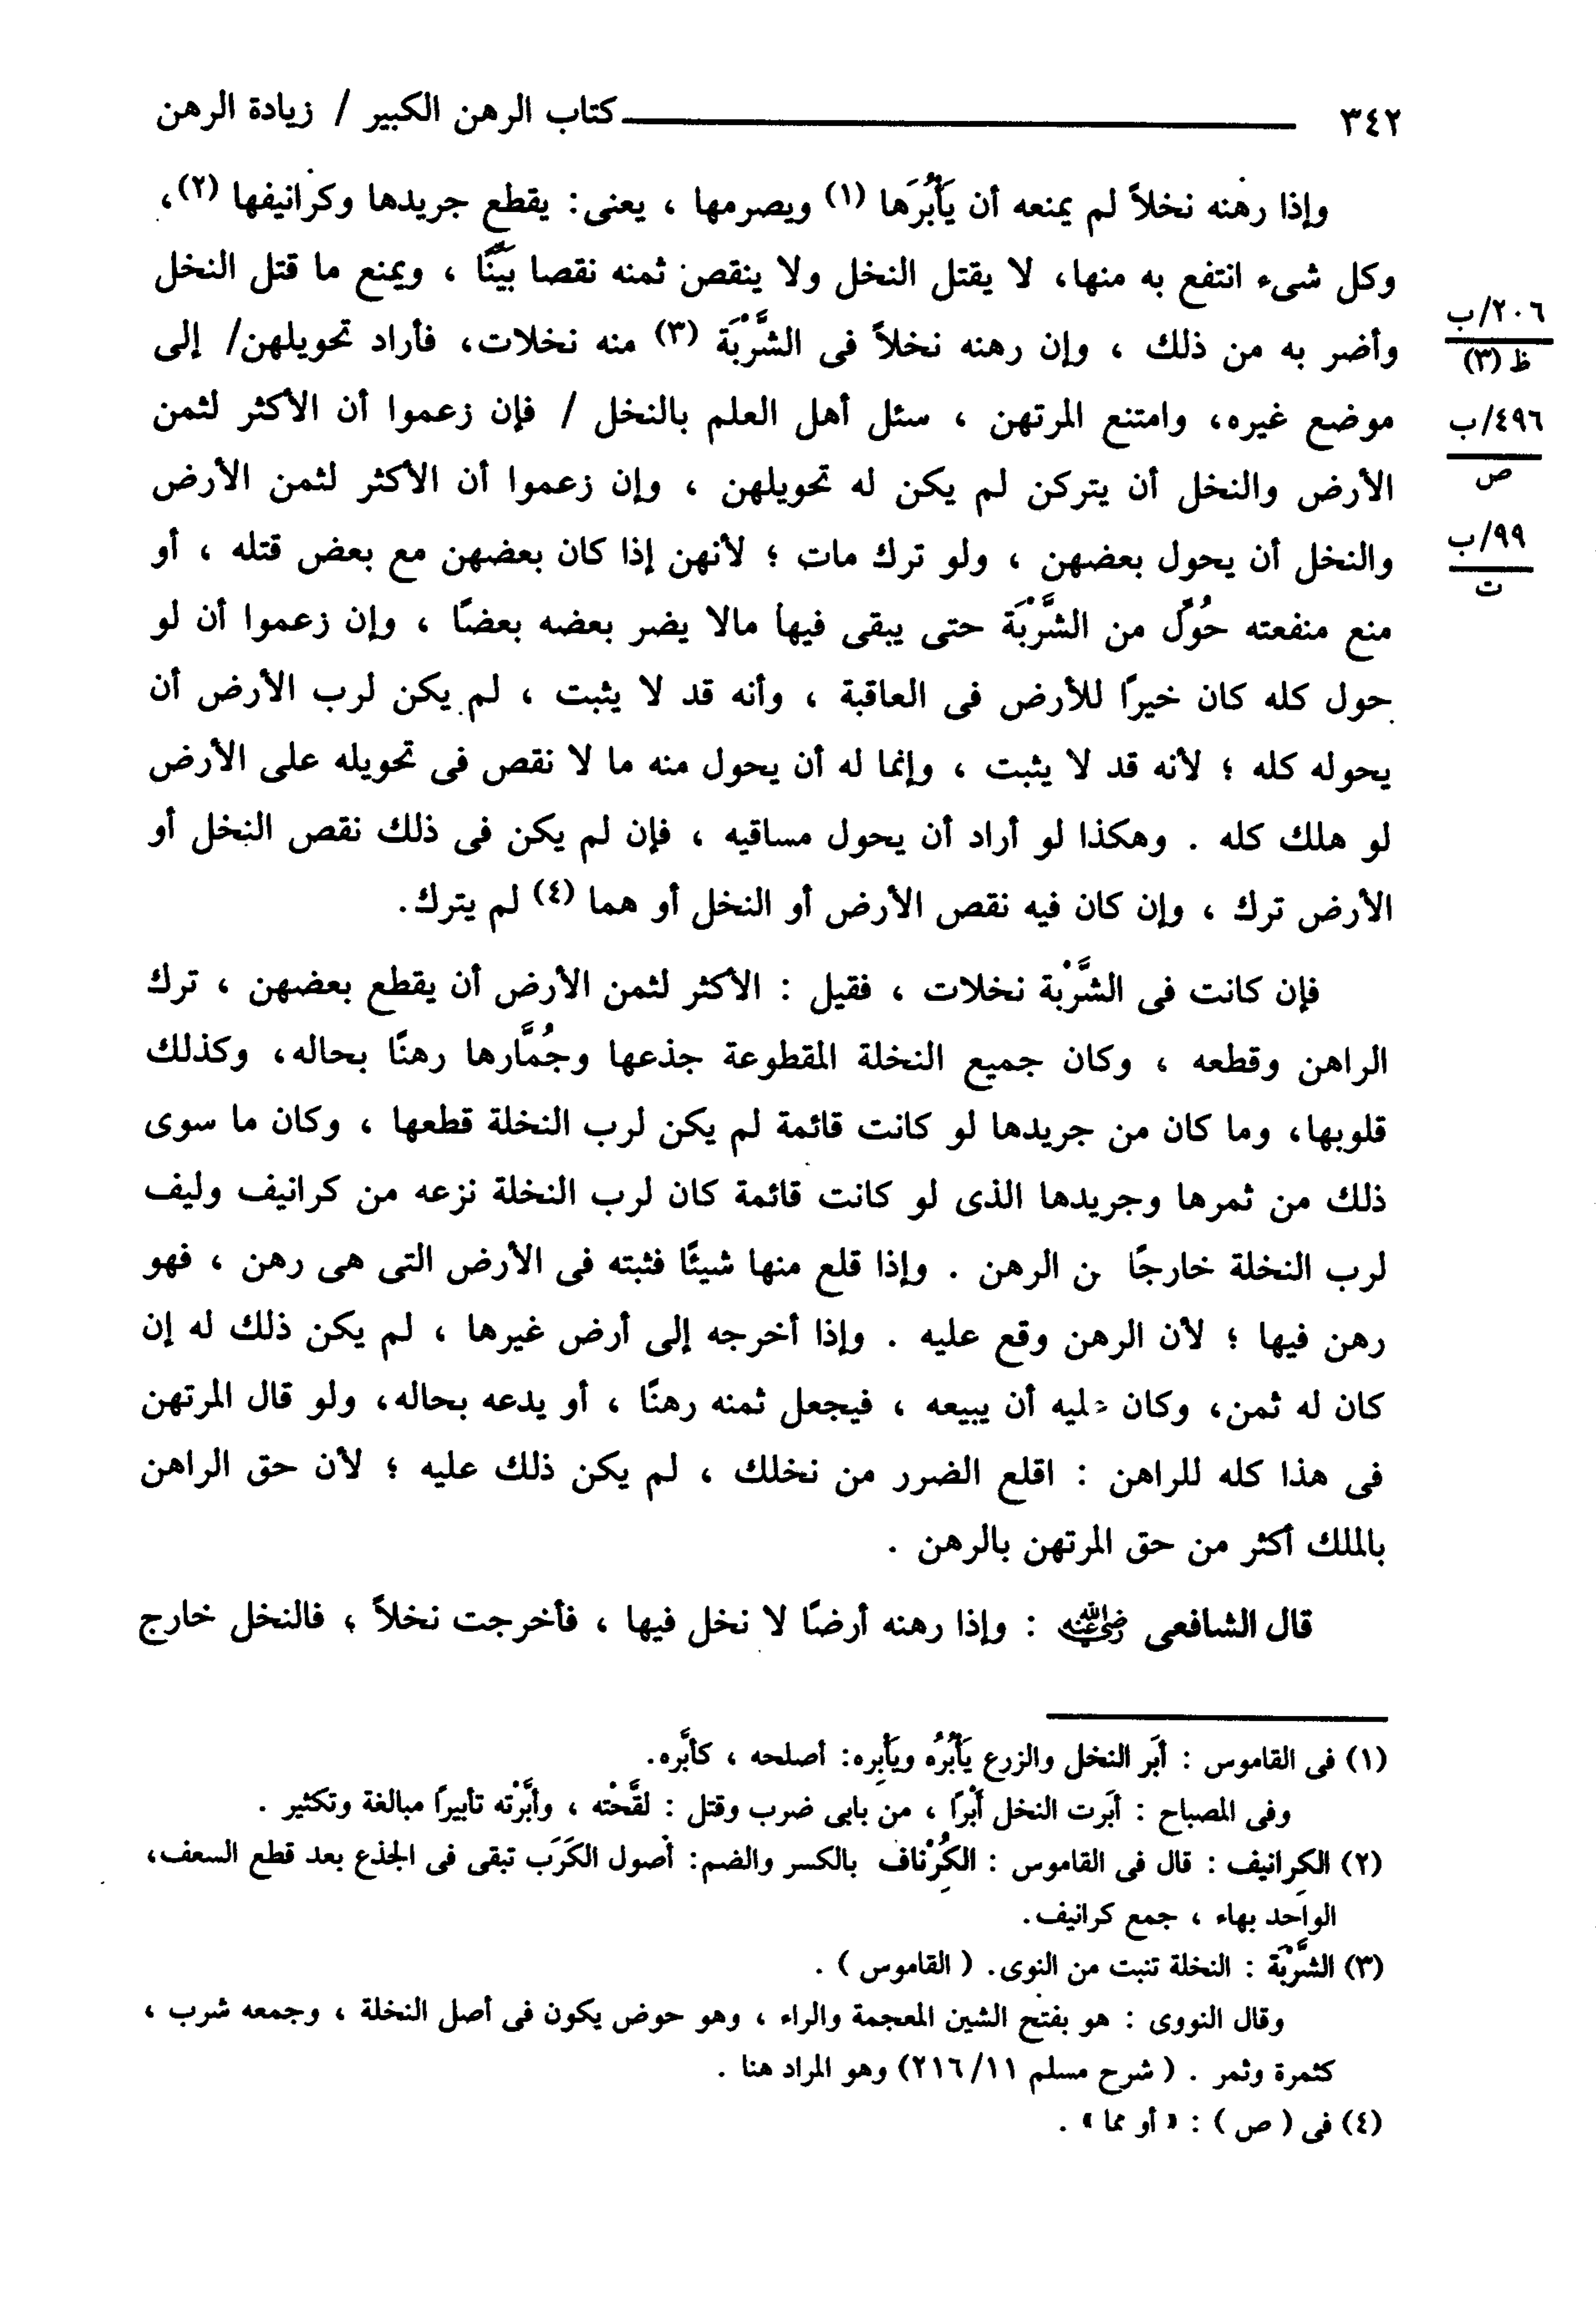 ٣٤٢ كتاب الرهن الكبير / زيادة الرهن
وإذا رهنه نخلاً لم يمنعه أن يَأْبُرَها (١) ويصرمها ، يعنى: يقطع جريدها وكرانيفها (٢)،
وكل شىء انتفع به منها، لا يقتل النخل ولا ينقص ثمنه نقصا بَيِّنًا ، ويمنع ما قتل النخل
٢٠٦/ب
ظ (٣)
وأضر به من ذلك ، وإن رهنه نخلاً فى الشَّرْبَة (٣) منه نخلات، فأراد تحويلهن/ إلى
٤٩٦/ب
ص
موضع غيره، وامتنع المرتهن ، سئل أهل العلم بالنخل / فإن زعموا أن الأكثر لثمن
الأرض والنخل أن يتركن لم يكن له تحويلهن ، وإن زعموا أن الأكثر لثمن الأرض
٩٩/ب
ت
والنخل أن يحول بعضهن ، ولو ترك مات ؛ لأنهن إذا كان بعضهن مع بعض قتله ، أو
منع منفعته حُوِّل من الشَّرْبَة حتى يبقى فيها مالا يضر بعضه بعضًا ، وإن زعموا أن لو
حول كله كان خيرًا للأرض فى العاقبة ، وأنه قد لا يثبت ، لم يكن لرب الأرض أن
يحوله كله ؛ لأنه قد لا يثبت ، وإنما له أن يحول منه ما لا نقص فى تحويله على الأرض
لو هلك كله . وهكذا لو أراد أن يحول مساقيه ، فإن لم يكن فى ذلك نقص النخل أو
الأرض ترك ، وإن كان فيه نقص الأرض أو النخل أو هما (٤) لم يترك.
فإن كانت فى الشَّرْبة نخلات ، فقيل : الأكثر لثمن الأرض أن يقطع بعضهن ، ترك
الراهن وقطعه ، وكان جميع النخلة المقطوعة جذعها وجُمَّارها رهنًا بحاله، وكذلك
قلوبها، وما كان من جريدها لو كانت قائمة لم يكن لرب النخلة قطعها ، وكان ما سوى
ذلك من ثمرها وجريدها الذى لو كانت قائمة كان لرب النخلة نزعه من كرانيف وليف
لرب النخلة خارجًا ن الرهن . وإذا قلع منها شيئًا فثبته فى الأرض التى هى رهن ، فهو
رهن فيها ؛ لأن الرهن وقع عليه . وإذا أخرجه إلى أرض غيرها ، لم يكن ذلك له إن
كان له ثمن، وكان عليه أن يبيعه ، فيجعل ثمنه رهنًا ، أو يدعه بحاله، ولو قال المرتهن
فى هذا كله للراهن : اقلع الضرر من نخلك ، لم يكن ذلك عليه ؛ لأن حق الراهن
بالملك أكثر من حق المرتهن بالرهن .
قال الشافعى رضي الله عنه : وإذا رهنه أرضًا لا نخل فيها ، فأخرجت نخلاً ، فالنخل خارج
(١) فى القاموس : أبَر النخل والزرع يَأْبُرُه ويَأْبِره: أصلحه ، كأبَّره.
وفى المصباح : أبَرت النخل أَبْرًا ، من بابى ضرب وقتل : لقَّحْته ، وأبَّرْته تأبيرًا مبالغة وتكثير .
(٢) الكرانيف : قال فى القاموس : الكُِرْناف بالكسر والضم: أصول الكَرَب تبقى فى الجذع بعد قطع السعف،
الواحد بهاء ، جمع كرانيف.
(٣) الشَّرْبَة : النخلة تنبت من النوى. ( القاموس ) .
وقال النووى : هو بفتح الشين المعجمة والراء ، وهو حوض يكون فى أصل النخلة ، وجمعه شرب ،
كثمرة وثمر . ( شرح مسلم ٢١٦/١١) وهو المراد هنا .
(٤) فى ( ص ) : « أو مما » .